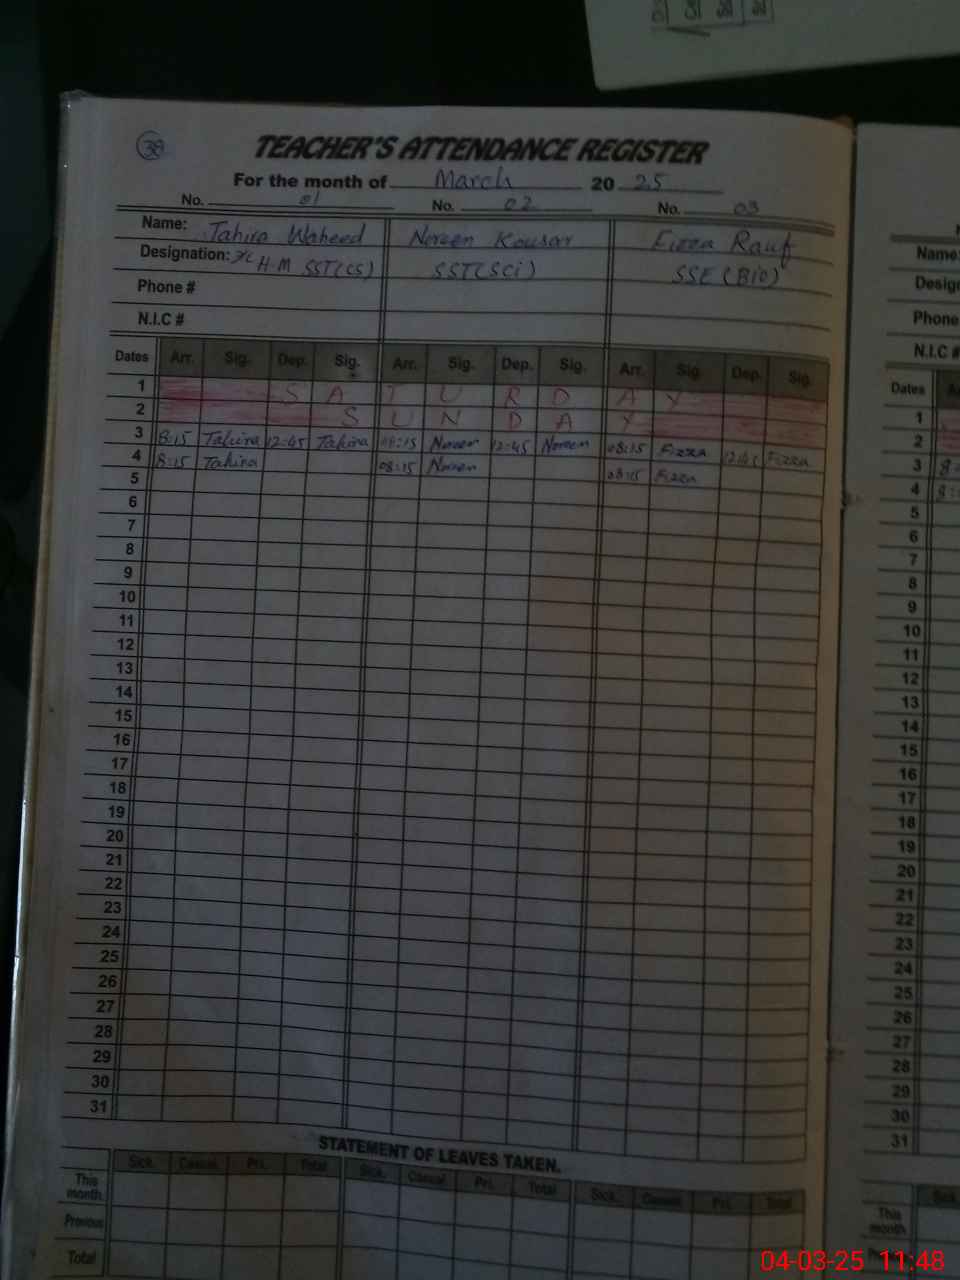 38
TEACHER'S ATTENDANCE REGISTER
For the month of March 2025
No. 01 No. 02 No. 03
Name: Tahira Waheed Noreen Kousar Fizza Rauf
Designation: H.M SST(CS) SST(SCi) SSE (BiO)
Phone #
N.I.C #
Dates Arr. Sig. Dep. Sig. Arr. Sig. Dep. Sig. Arr. Sig. Dep. Sig.
1 S A T U R D A Y
2 S U N D A Y
3 8:15 Tahira 12:45 Tahira 08:15 Noreen 12:45 Noreen 08:15 Fizza 12:45 Fizza
4 8:15 Tahira 08:15 Noreen 08:15 Fizza
5
6
7
8
9
10
11
12
13
14
15
16
17
18
19
20
21
22
23
24
25
26
27
28
29
30
31
STATEMENT OF LEAVES TAKEN.
Sick. Casual Pri. Total Sick. Casual Pri. Total Sick. Casual Pri. Total
This month.
Previous
Total
Name:
Phone
N.I.C #
Dates
1
2
3
4
5
6
7
8
9
10
11
12
13
14
15
16
17
18
19
20
21
22
23
24
25
26
27
28
29
30
31
This month
04-03-25 11:48